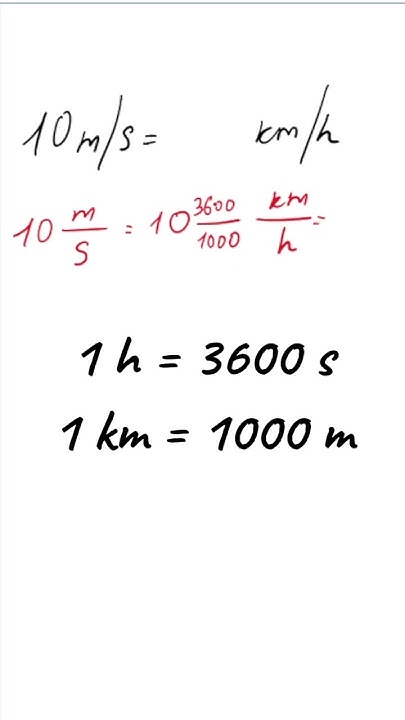 10 m/s = km/h
10 m/s = 10 3600/1000 km/h =
1 h = 3600 s
1 km = 1000 m